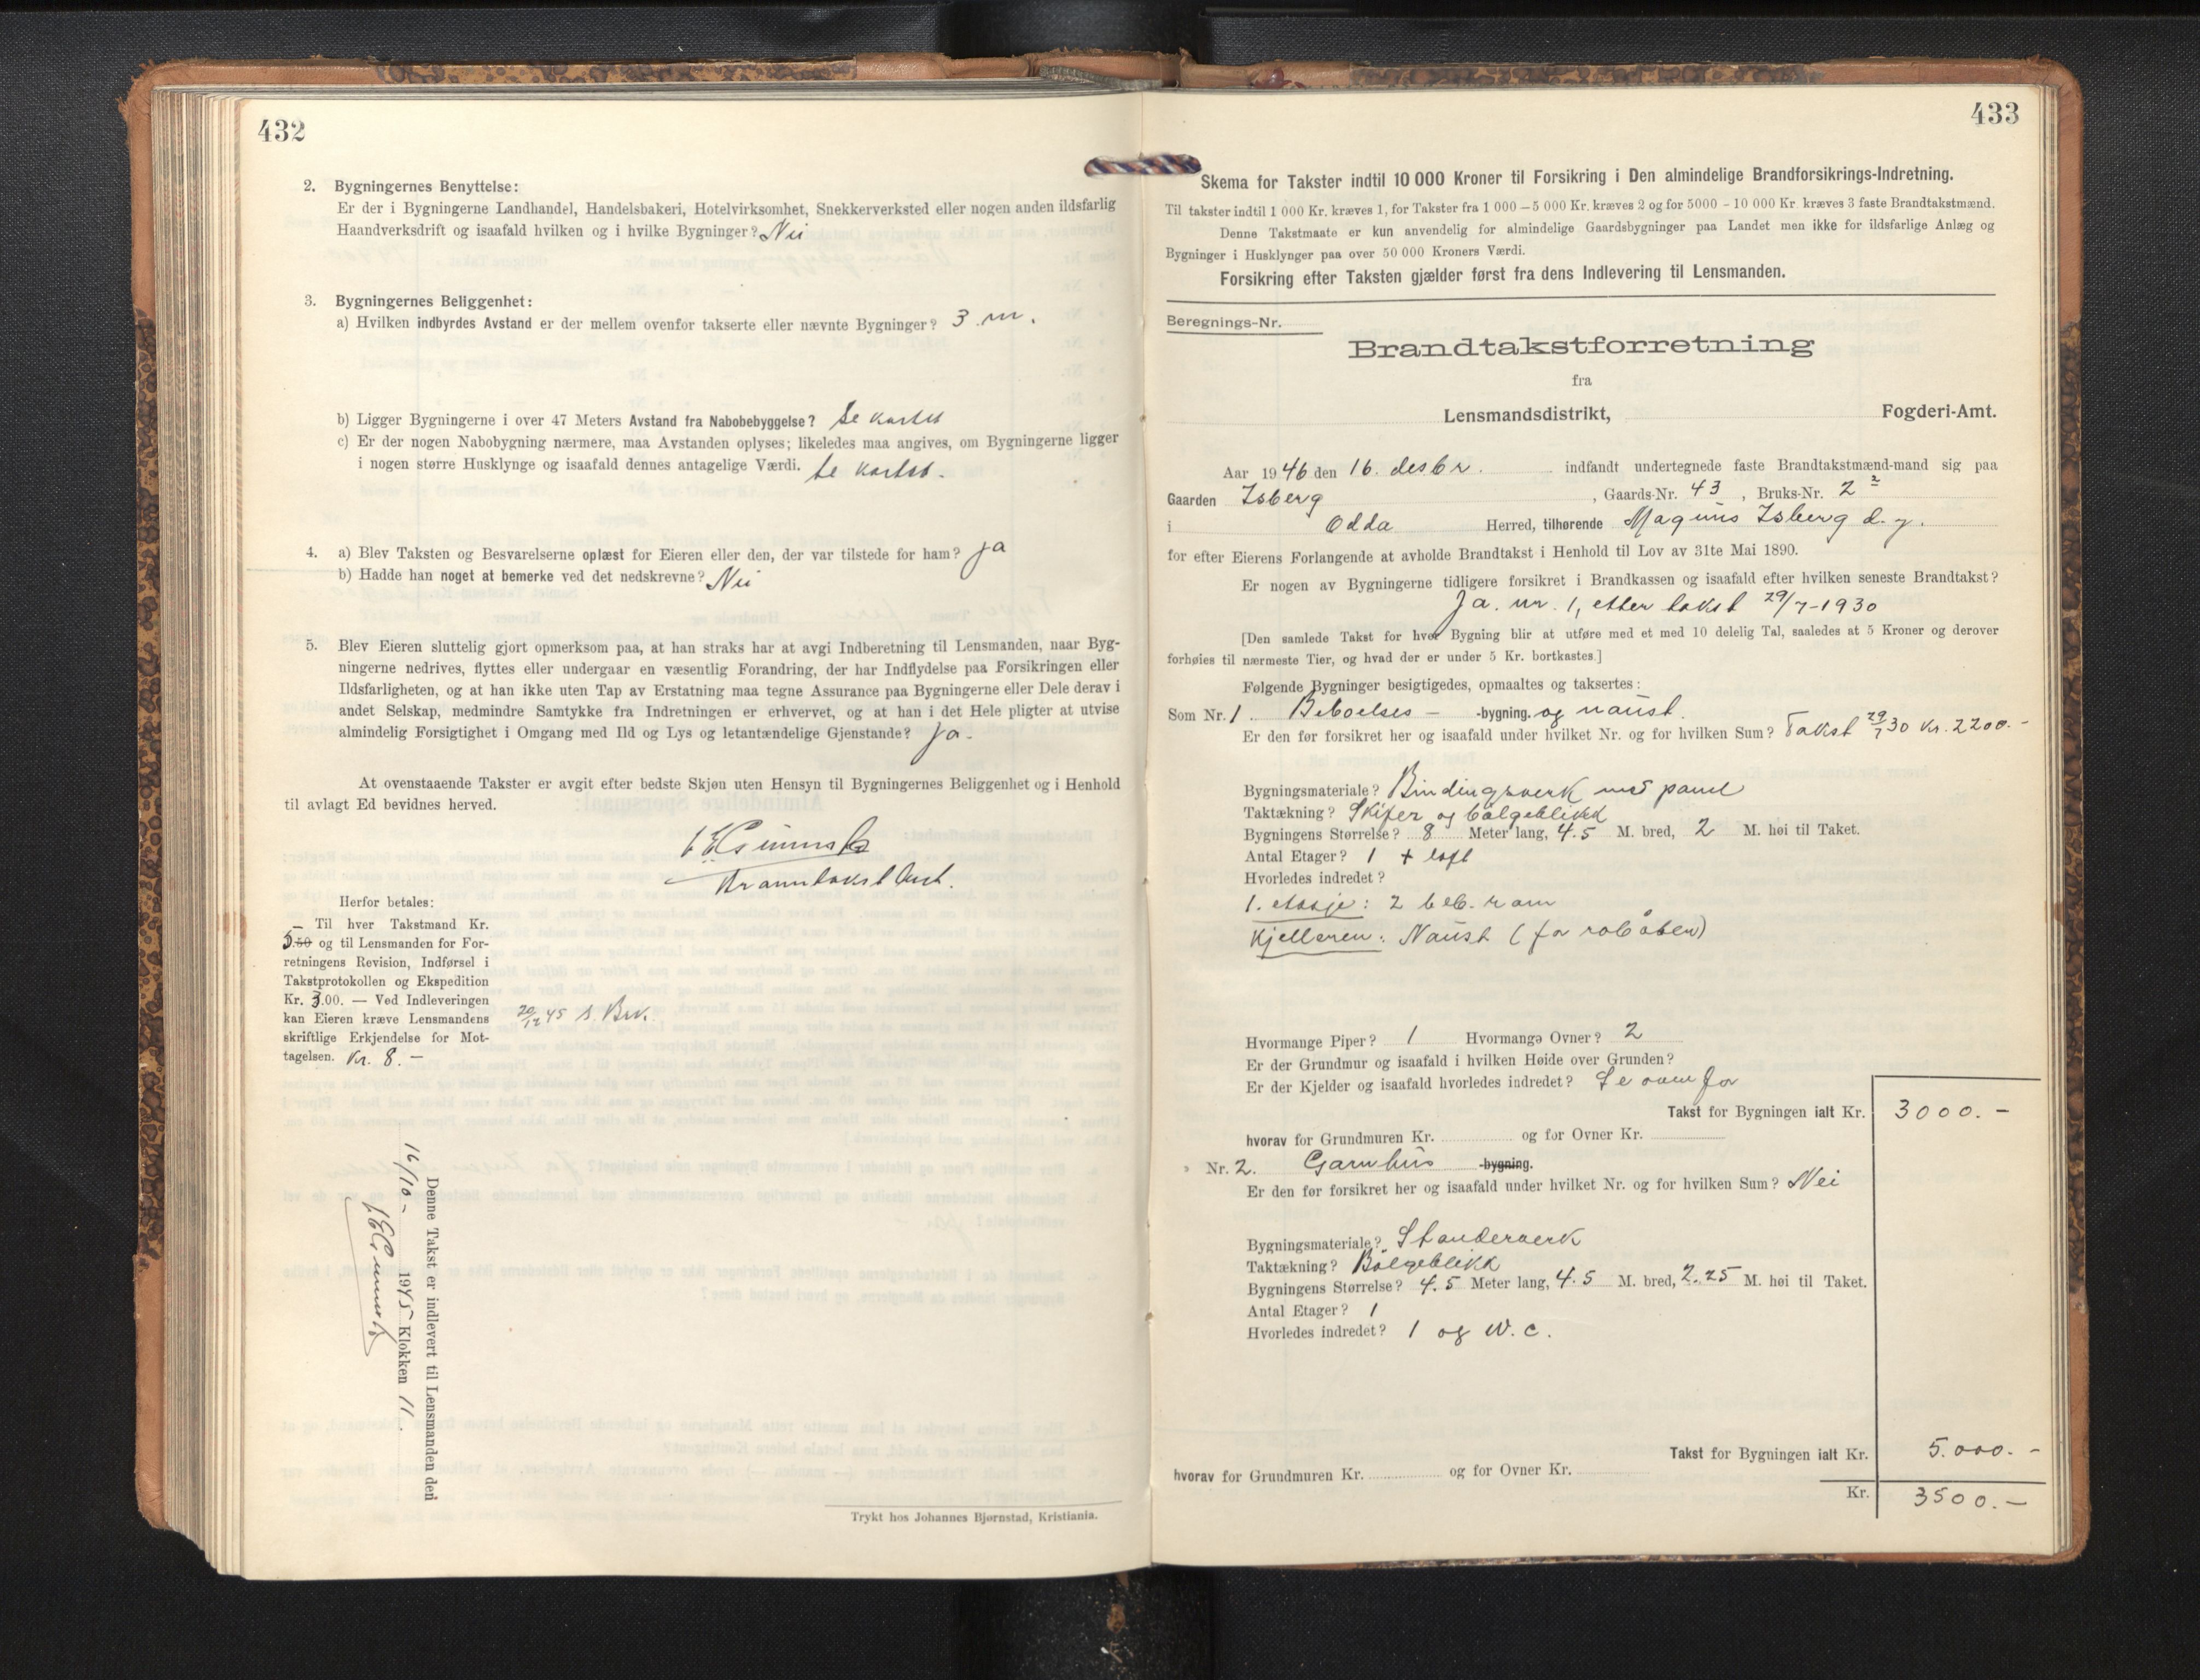 432
2. Bygningernes Benyttelse:
Er der i Bygningerne Landhandel, Handelsbakeri, Hotelvirksomhet, Snekkerverksted eller nogen anden ildsfarlig
Haandverksdrift og isaafald hvilken og i hvilke Bygninger? Nei
3. Bygningernes Beliggenhet:
a) Hvilken indbyrdes Avstand er der mellem ovenfor takserte eller nævnte Bygninger? 3 m.
b) Ligger Bygningerne i over 47 Meters Avstand fra Nabobebyggelse? Se kartet
c) Er der nogen Nabobygning nærmere, maa Avstanden oplyses; likeledes maa angives, om Bygningerne ligger
i nogen større Husklynge og isaafald dennes antagelige Værdi. Se kartet.
4. a) Blev Taksten og Besvarelserne oplæst for Eieren eller den, der var tilstede for ham? Ja
b) Hadde han noget at bemerke ved det nedskrevne? Nei
5. Blev Eieren sluttelig gjort opmerksom paa, at han straks har at avgi Indberetning til Lensmanden, naar Byg-
ningerne nedrives, flyttes eller undergaar en væsentlig Forandring, der har Indflydelse paa Forsikringen eller
Ildsfarligheten, og at han ikke uten Tap av Erstatning maa tegne Assurance paa Bygningerne eller Dele derav i
andet Selskap, medmindre Samtykke fra Indretningen er erhvervet, og at han i det Hele pligter at utvise
almindelig Forsigtighet i Omgang med Ild og Lys og letantændelige Gjenstande? Ja.
At ovenstaaende Takster er avgit efter bedste Skjøn uten Hensyn til Bygningernes Beliggenhet og i Henhold
til avlagt Ed bevidnes herved.
Herfor betales:
Til hver Takstmand Kr.
5.- og til Lensmanden for For-
retningens Revision, Indførsel i
Takstprotokollen og Ekspedition
Kr. 3.00. — Ved Indleveringen
kan Eieren kræve Lensmandens
skriftlige Erkjendelse for Mot-
tagelsen. Kr. 8.-
20/12 45 s. Brv.
Denne Takst er indlevert til Lensmanden den
16/10- 1945 Klokken 11
Trykt hos Johannes Bjørnstad, Kristiania.
433
Skema for Takster indtil 10 000 Kroner til Forsikring i Den almindelige Brandforsikrings-Indretning.
Til takster indtil 1 000 Kr. kræves 1, for Takster fra 1 000—5 000 Kr. kræves 2 og for 5000 - 10 000 Kr. kræves 3 faste Brandtakstmænd.
Denne Takstmaate er kun anvendelig for almindelige Gaardsbygninger paa Landet men ikke for ildsfarlige Anlæg og
Bygninger i Husklynger paa over 50 000 Kroners Værdi.
Forsikring efter Taksten gjælder først fra dens Indlevering til Lensmanden.
Beregnings-Nr.
Brandtakstforretning
fra
Lensmandsdistrikt, Fogderi-Amt.
Aar 1946 den 16. desbr. indfandt undertegnede faste Brandtakstmænd-mand sig paa
Gaarden Isberg, Gaards-Nr. 43, Bruks-Nr. 2 2
i Odda Herred, tilhørende Magnus Isberg d. y.
for efter Eierens Forlangende at avholde Brandtakst i Henhold til Lov av 31te Mai 1890.
Er nogen av Bygningerne tidligere forsikret i Brandkassen og isaafald efter hvilken seneste Brandtakst?
Ja. nr. 1, etter takst 29/7-1930
[Den samlede Takst for hver Bygning blir at utføre med et med 10 delelig Tal, saaledes at 5 Kroner og derover
forhøies til nærmeste Tier, og hvad der er under 5 Kr. bortkastes.]
Følgende Bygninger besigtigedes, opmaaltes og taksertes:
Som Nr. 1 Beboelses - -bygning. og naust.
Er den før forsikret her og isaafald under hvilket Nr. og for hvilken Sum? Takst 29/7 30 Kr. 2200.-
Bygningsmateriale? Bindingsverk med panel
Taktækning? Skifer og bølgeblikk
Bygningens Størrelse? 8 Meter lang, 4.5 M. bred, 2 M. høi til Taket.
Antal Etager? 1 + loft
Hvorledes indredet?
1. etasje: 2 beb. rom
Kjelleren: Naust (for robåten)
Hvormange Piper? 1 Hvormange Ovner? 2
Er der Grundmur og isaafald i hvilken Høide over Grunden?
Er der Kjelder og isaafald hvorledes indredet? Se ovenfor
Takst for Bygningen ialt Kr. 3000.-
hvorav for Grundmuren Kr. og for Ovner Kr.
» Nr. 2. Garnhus -bygning.
Er den før forsikret her og isaafald under hvilket Nr. og for hvilken Sum? Nei
Bygningsmateriale? Stenderverk
Taktækning? Bølgeblikk
Bygningens Størrelse? 4.5 Meter lang, 4.5 M. bred, 2.25 M. høi til Taket.
Antal Etager? 1
Hvorledes indredet? 1 og W.C.
Takst for Bygningen ialt Kr. 5.000.-
hvorav for Grundmuren Kr. og for Ovner Kr.
Kr. 3500.-